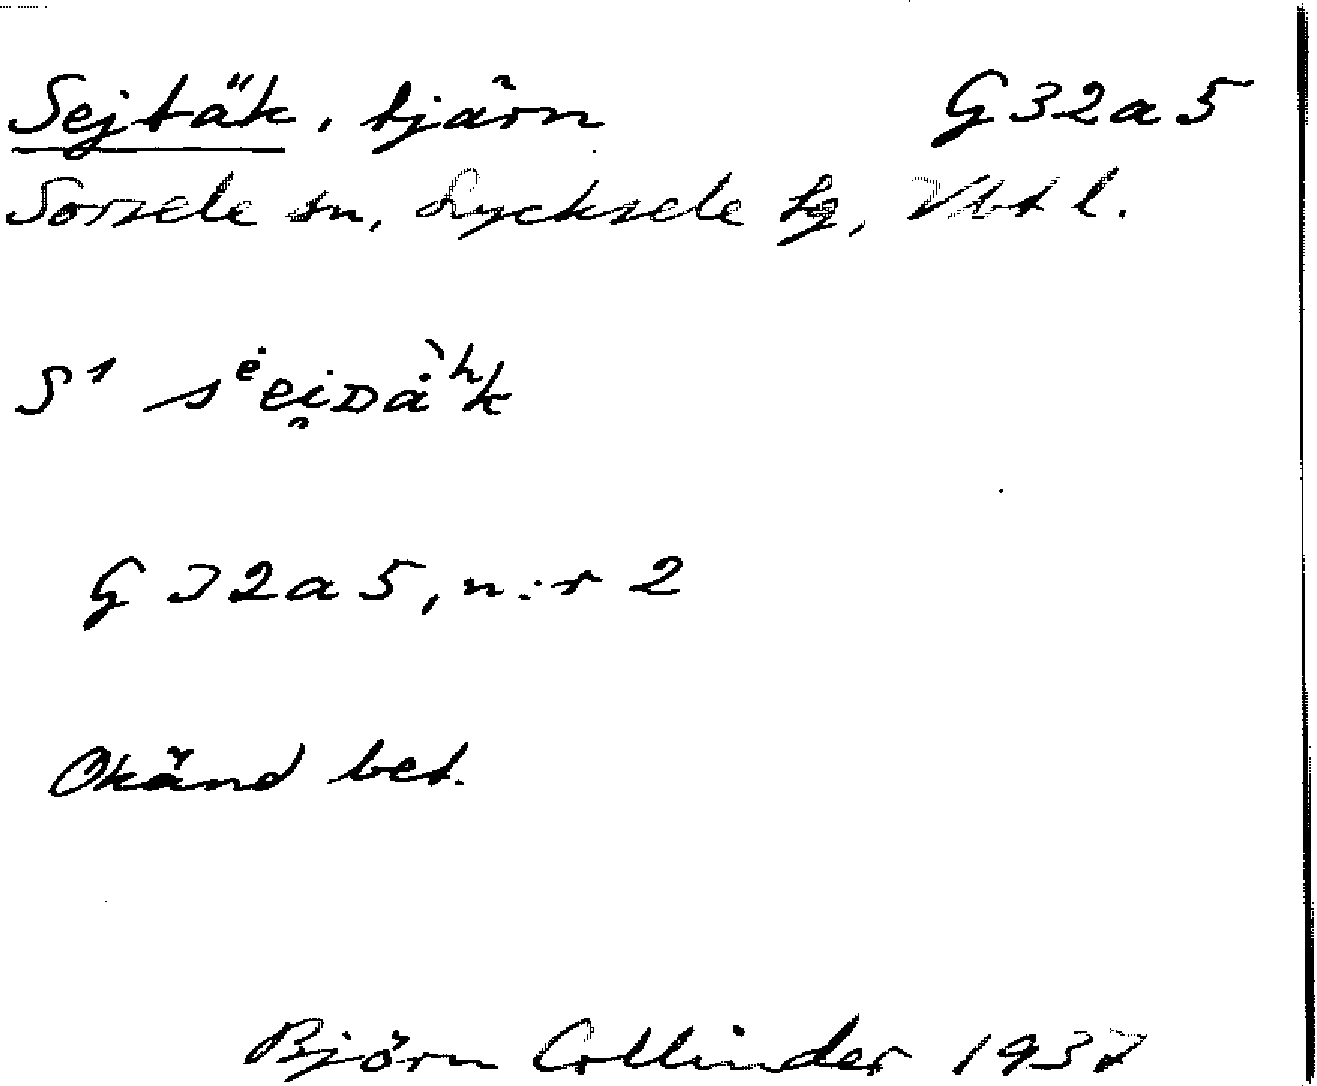 Sejtäk, tjärn G32a5
Sorsele sn, Lycksele lg, Vbt l.
S¹ sᵉei̯ᴅàʰk
G 32a5, n:r 2
Okänd bet.
Björn Collinder 1937